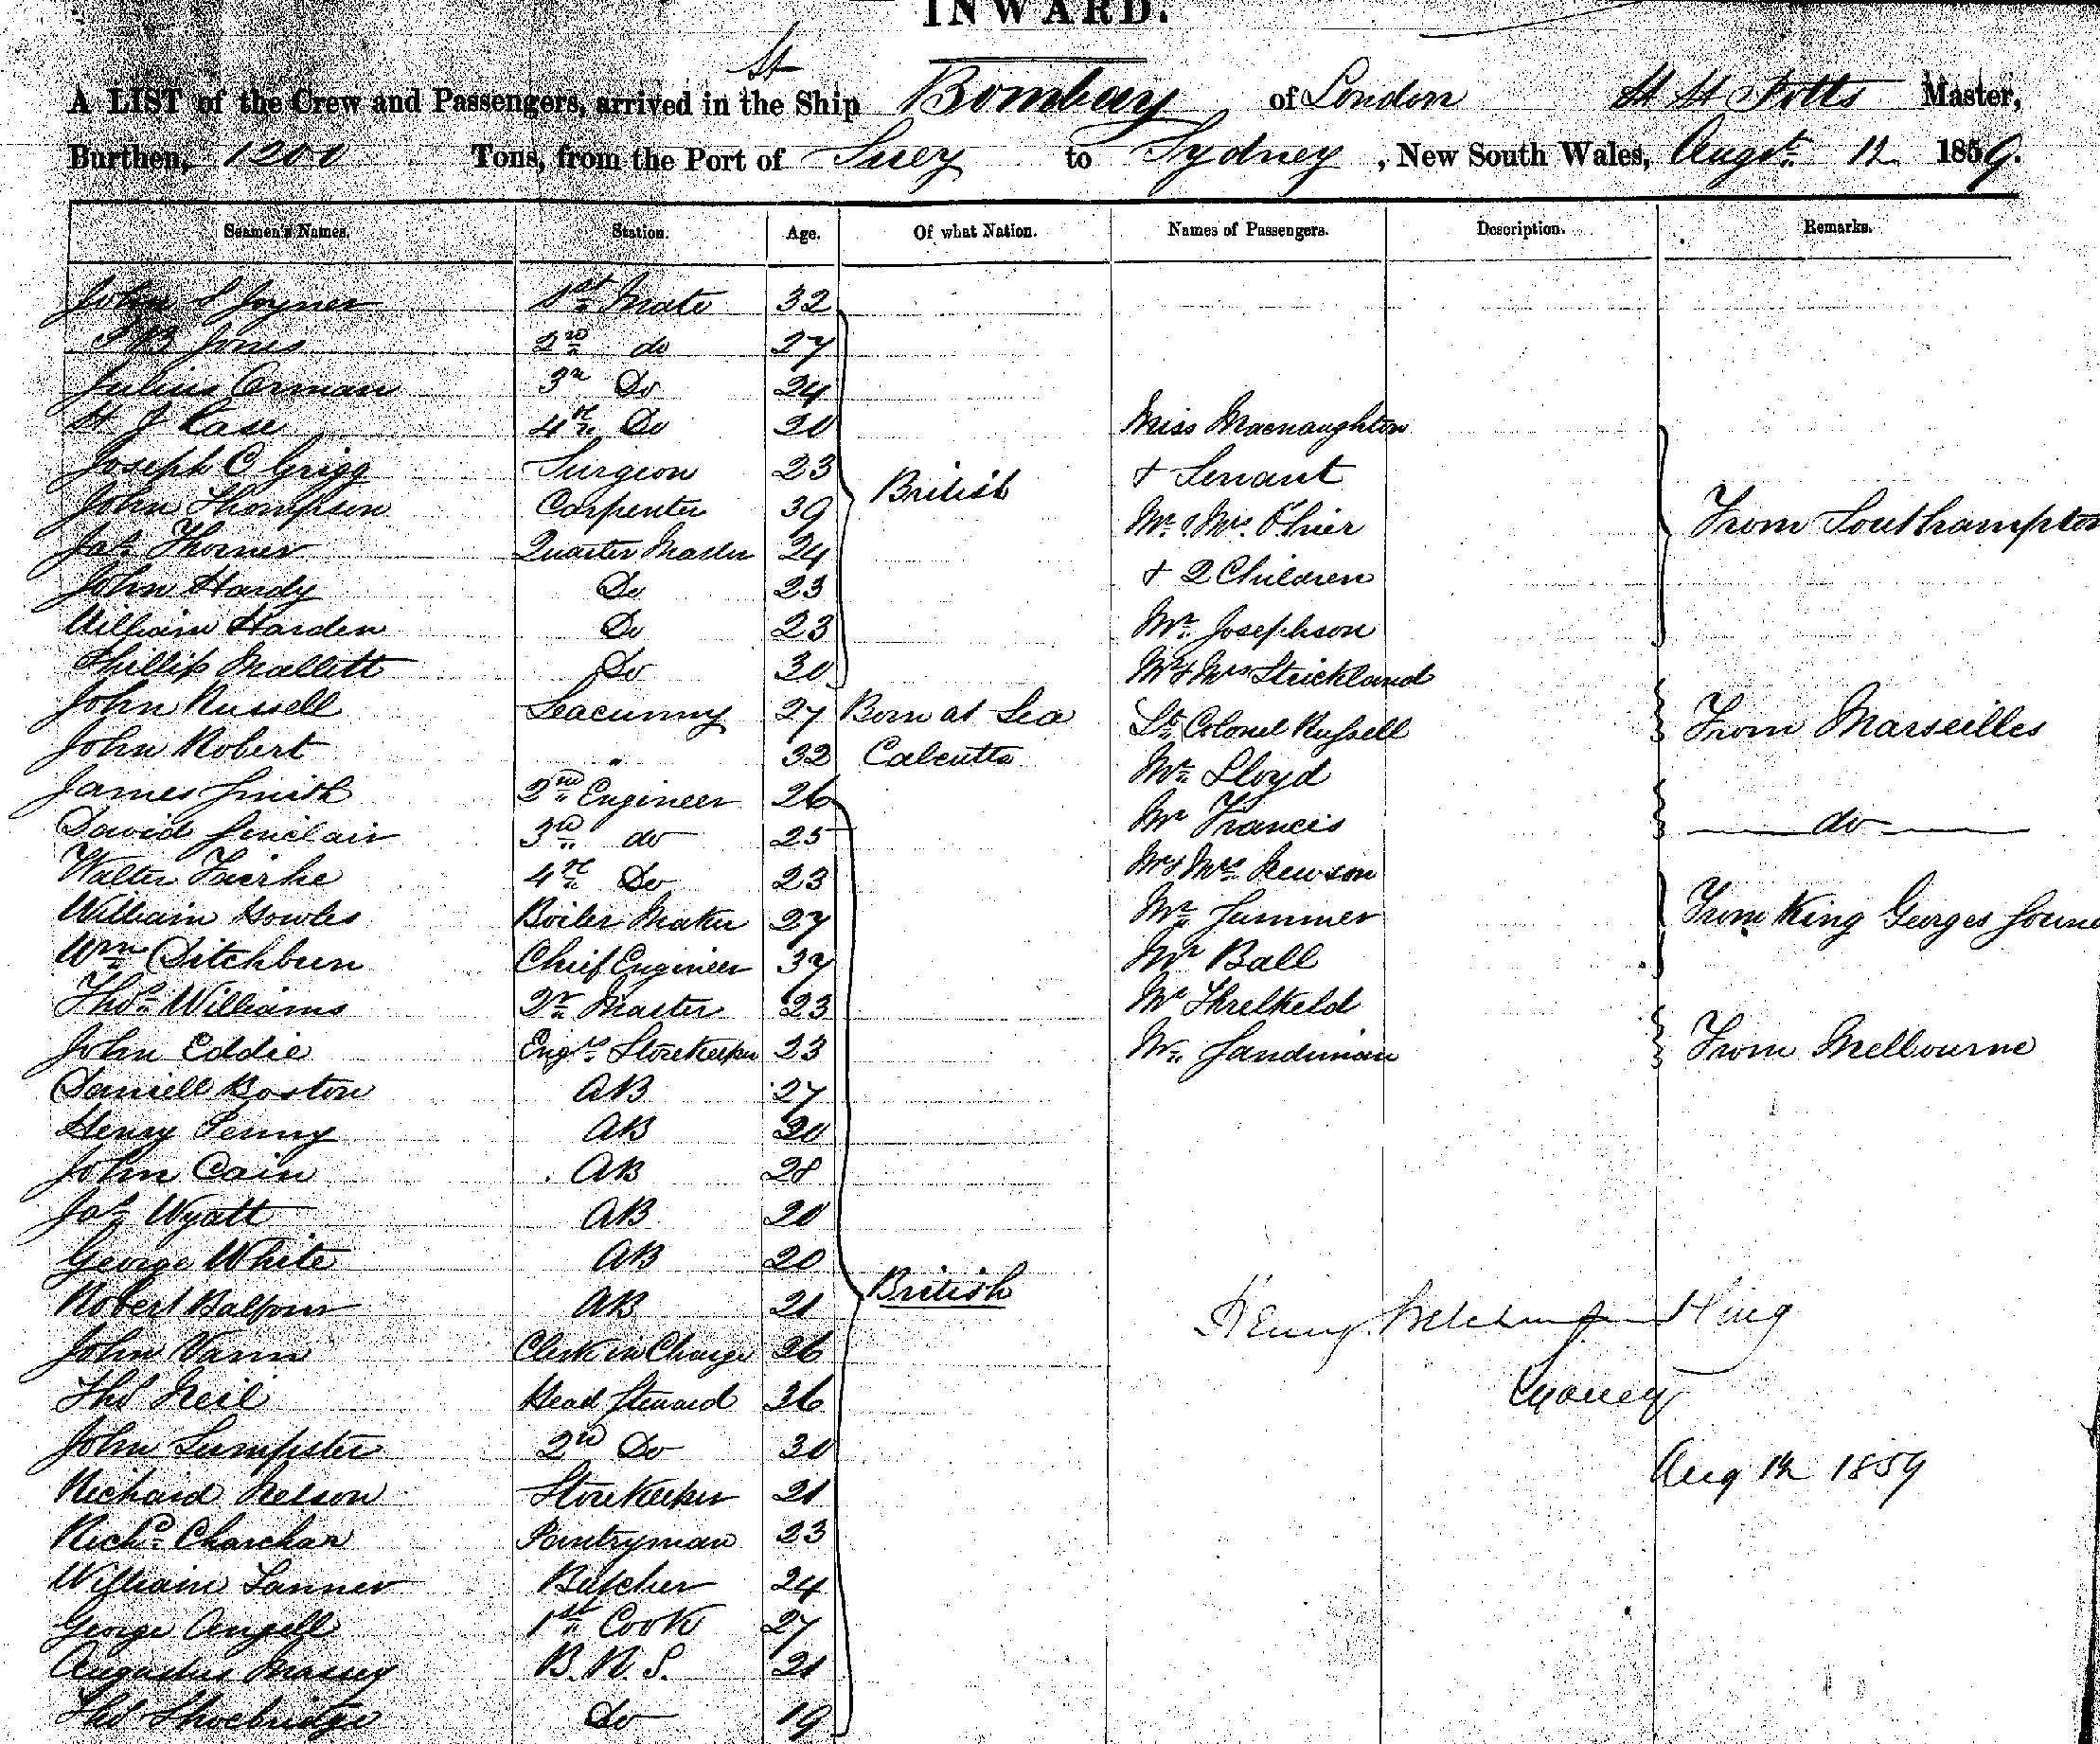 INWARD.
St
A LIST of the Crew and Passengers, arrived in the Ship Bombay of London H H Potts Master,
Burthen, 1200 Tons, from the Port of Suez to Sydney, New South Wales, Augt. 12 1859.
Seamen's Names. Station. Age. Of what Nation. Names of Passengers. Description. Remarks.
John S Joyner 1st Mate 32
Jones 2nd do 27
Julius Orman 3rd Do 24
H J Case 4th Do 20 Miss Macnaughton
Joseph C Grigg Surgeon 23 British + Servant
John Thompson Carpenter 39 Mr & Mrs From Southampton
Jas Thorner Quarter Master 24
John Hardy Do 23 + 2 Children
William Harden Do 23 Mr. Josephson
Phillip Mallett Do 30 Mr & Mrs Strickland
John Russell Seacunny 27 Born at Sea Lt. Colonel Russell From Marseilles
John Robert " 32 Calcutta Mr. Lloyd
James Smith 2nd Engineer 26 Mr Francis do
David Sinclair 3rd do 25
Walter 4th Do 23 Mr & Mrs Newson
William Howles Boiler Maker 27 Mr. Summer From King Georges Sound
Wm Ditchburn Chief Engineer 37 Mr Ball
Thos Williams Qr Master 23 Mr Threlkeld
John Eddie Engrs Storekeeper 23 Mr. Sandiman From Melbourne
Daniell Boston AB 27
Henry Penny AB 20
John Cain AB 28
Jas Wyatt AB 20
George White AB 20
Robert Balfour AB 21 British
Henry King
John Vann Clerk in Charge 26
Thos Neil Head Steward 26 Sydney
John Sumpster 2nd Do 30
Aug 12 1859
Richard Nelson Storekeeper 21
Richd. Charchar Pantryman 23
William Tanner Butcher 24
George Angell 1st Cook 27
Augustus Massey B. R. S. 21
Thos Shoebridge Do 19